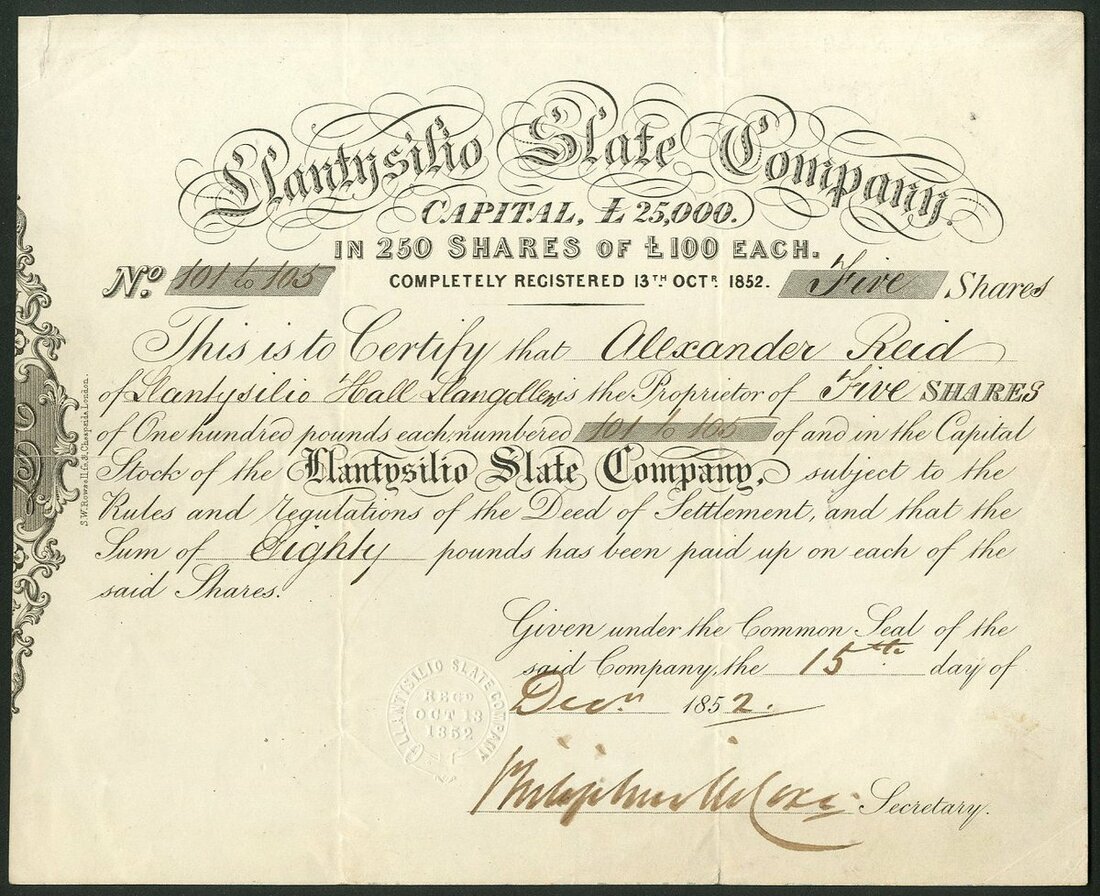 Llantysilio Slate Company.
CAPITAL, £25,000.
IN 250 SHARES OF £100 EACH.
No. 101 to 105 COMPLETELY REGISTERED 13TH OCTR 1852. Five Shares
This is to Certify that Alexander Reid
of Llantysilio Hall Llangollen is the Proprietor of Five SHARES
of One hundred pounds each, numbered 101 to 105 of and in the Capital
Stock of the Llantysilio Slate Company, subject to the
Rules and Regulations of the Deed of Settlement, and that the
Sum of Eighty pounds has been paid up on each of the
said Shares.
Given under the Common Seal of the
said Company, the 15th day of
Decr 1852.
Secretary.
LLANTYSILIO SLATE COMPANY
REGD
OCT 13
1852
S.W. Rowsell Cheapside London.